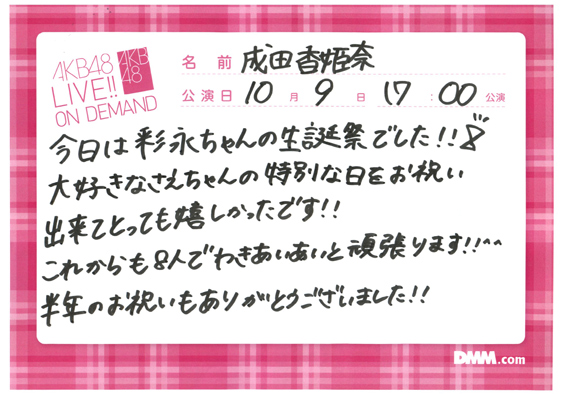 AKB48
LIVE!!
ON DEMAND
AKB
48
名前 成田香姫奈
公演日 10月9日 17:00公演
今日は彩永ちゃんの生誕祭でした!!
大好きなさえちゃんの特別な日をお祝い
出来てとっても嬉しかったです!!
これからも8人でわきあいあいと頑張ります!!^^
半年のお祝いもありがとうございました!!
DMM.com